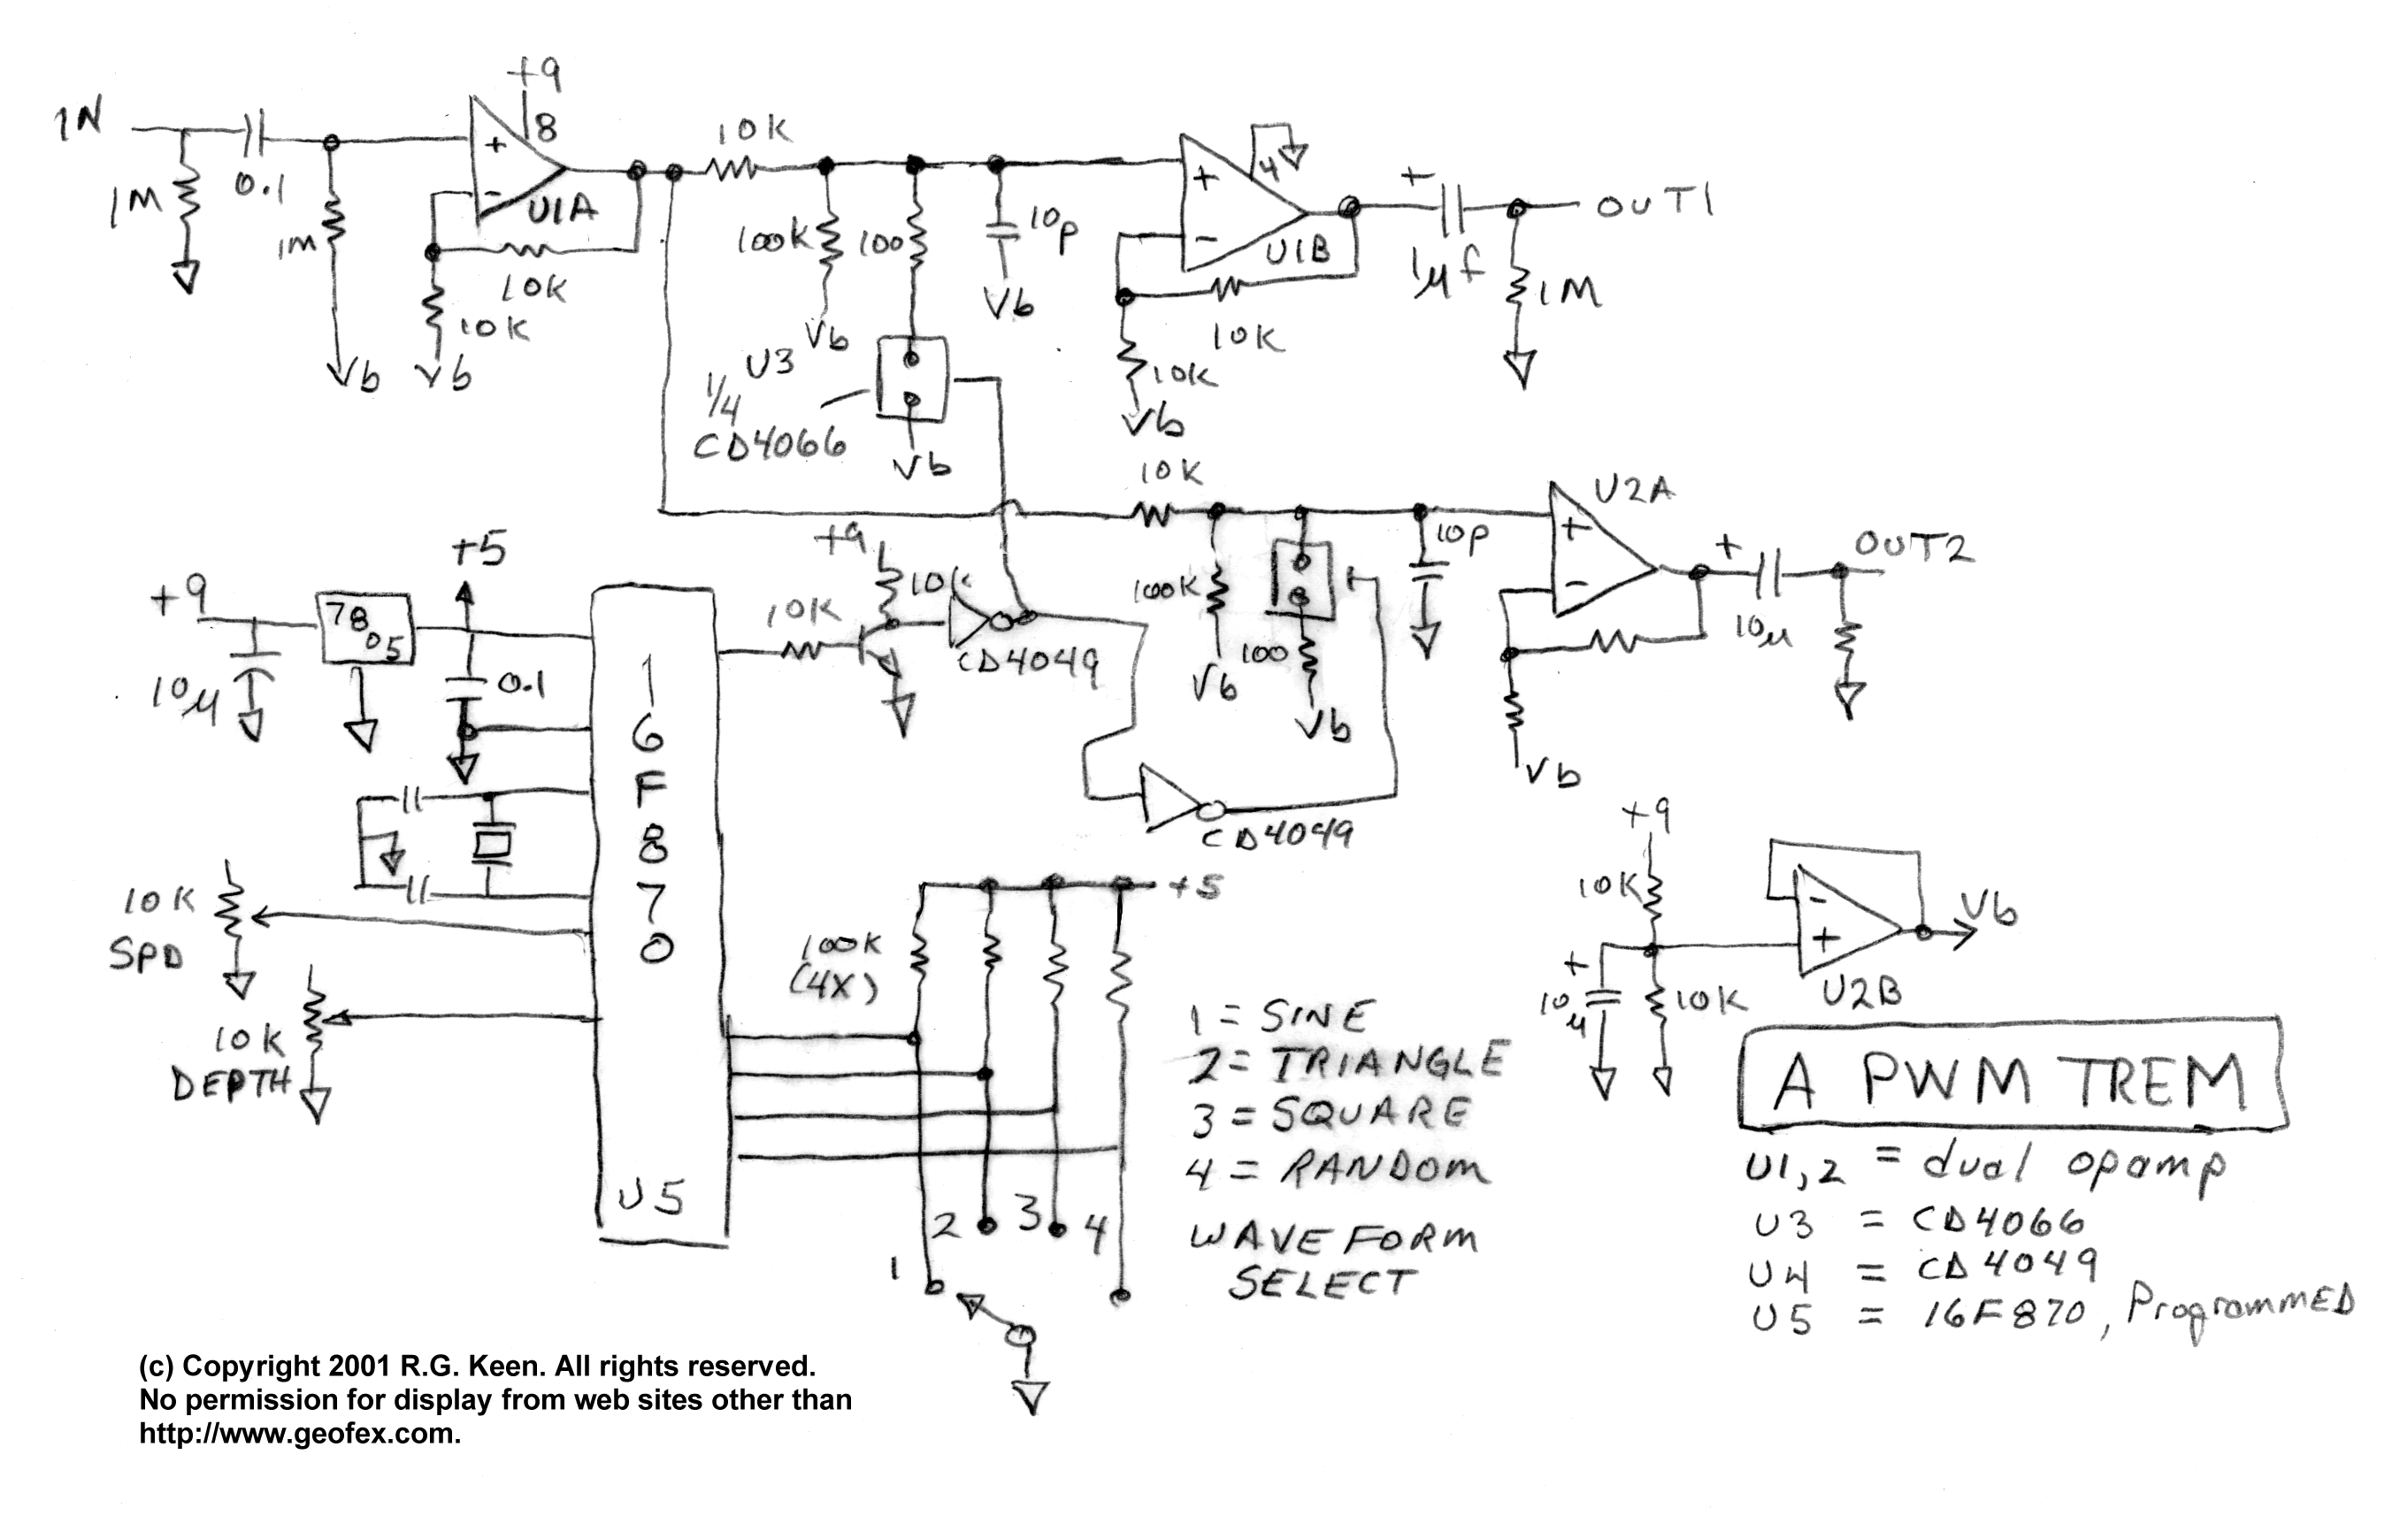 +9
IN
8
10K
+
4
+
0.1
-
U1A
1M
1M
100K
100
10p
-
U1B
+
OUT1
1µf
1M
10K
10K
Vb
Vb
Vb
Vb
10K
10K
Vb
U3
1/4
CD4066
Vb
10K
U2A
+5
+9
10K
10p
+
+
OUT2
+9
7805
10K
100K
-
10µ
10µ
0.1
CD4049
100
Vb
Vb
Vb
16F870
CD4049
+9
10K
SPD
+5
10K
-
+
Vb
100K
(4X)
+
10µ
10K
U2B
10K
DEPTH
1 = SINE
2 = TRIANGLE
3 = SQUARE
4 = RANDOM
WAVE FORM
SELECT
A PWM TREM
U1,2 = dual opamp
U3 = CD4066
U4 = CD4049
U5 = 16F870, Programmed
U5
2
3
4
1
(c) Copyright 2001 R.G. Keen. All rights reserved.
No permission for display from web sites other than
http://www.geofex.com.